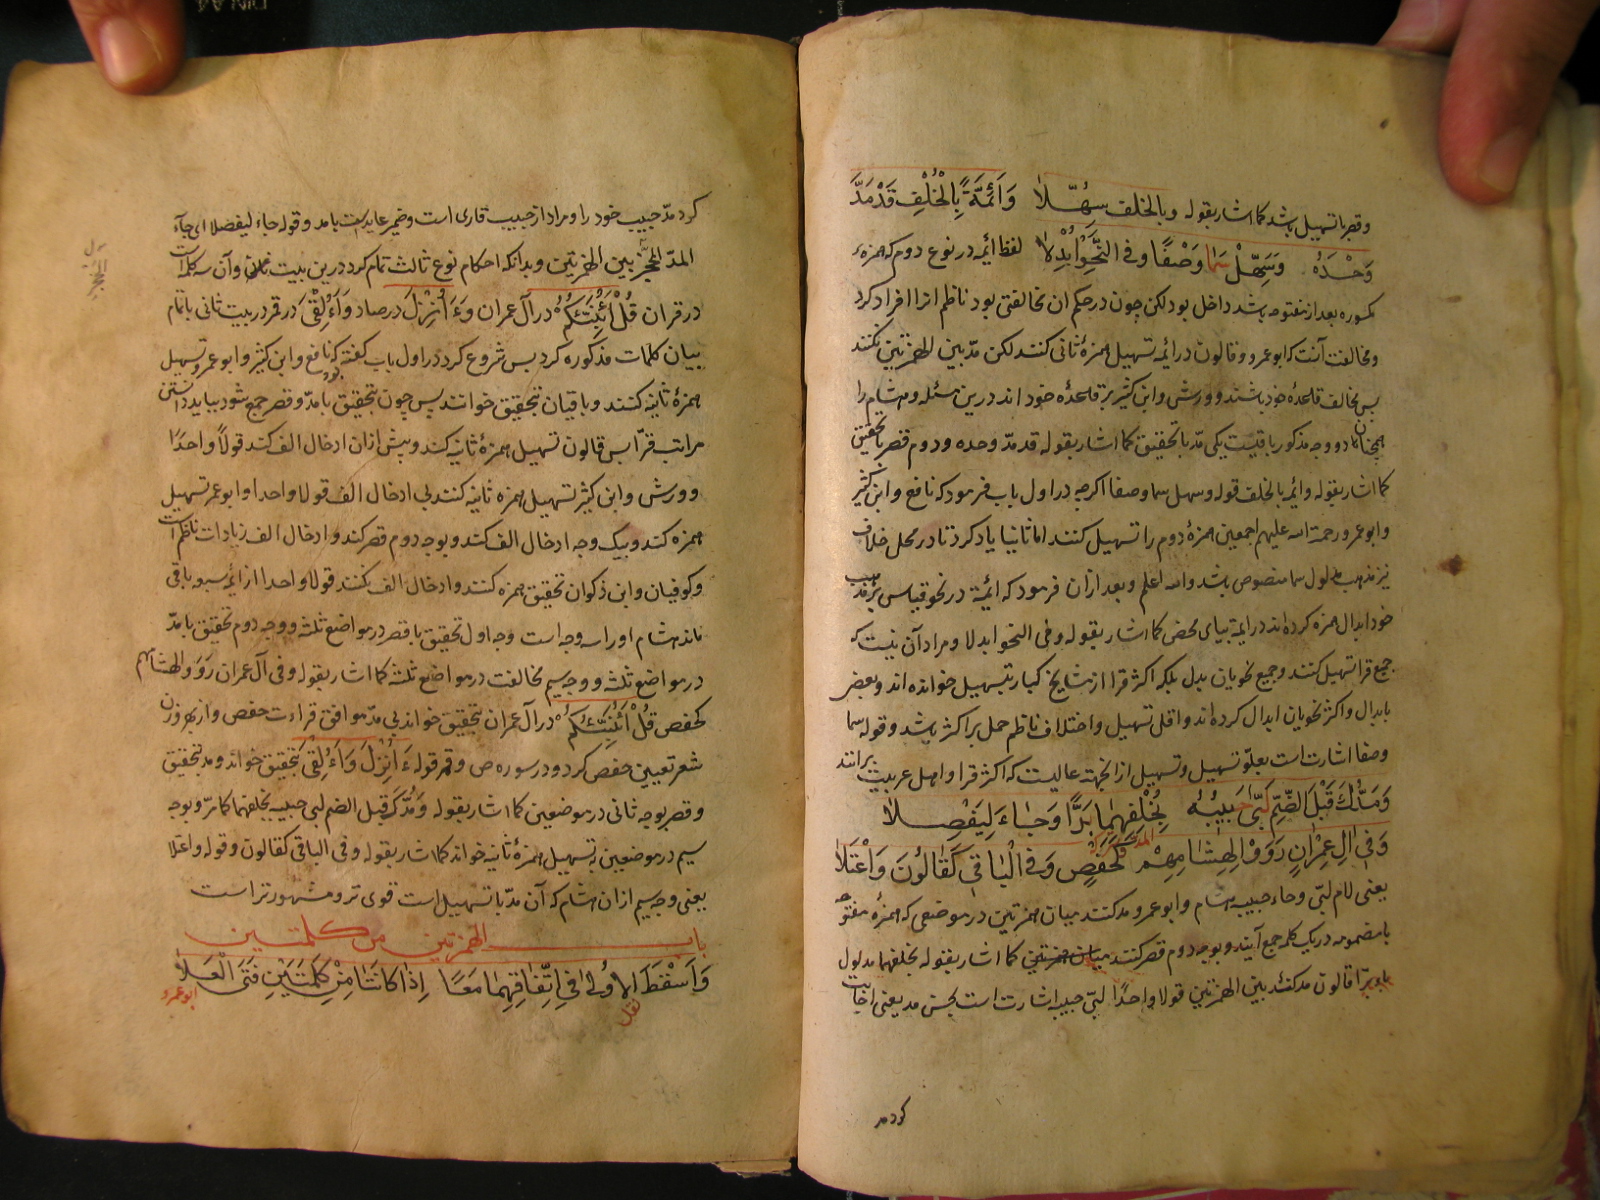 وقصر با تسهیل باشد کما اشار بقوله وبالخلف سهّلا وَأَئِمَّةً بِالْخُلْفِ قَدْ مَدَّ
وَحْدَهُ وَسَهِّلْ سَمَا وَصْفًا وَفِي النَّحْوِ أُبْدِلَا لفظ ائمه در نوع دوم که همزهء
مکسوره بعد از مفتوحه باشد داخل بود لکن چون در حکم ان مخالفتی بود ناظم انرا افراد کرد
ومخالفت آنست که ابو عمرو وقالون در ائمه تسهیل همزهٔ ثانی کنند لکن مد بین الهمزتین نکنند
پس مخالف قاعدهٔ خود باشند وورش وابن کثیر بر قاعدهٔ خود اند درین مسئله وهشام را
همچنان دو وجه مذکور باقیست یکی مد با تحقیق کما اشار بقوله قد مدّ وحده ودوم قصر با تحقیق
کما اشار بقوله وائمه بالخلف قوله وسهل سما وصفا اکرچه در اول باب فرمود که نافع وابن کثیر
وابو عمرو رحمة الله علیهم اجمعین همزهٔ دوم را تسهیل کنند اما ثانیا یاد کرد تا در محل خلاف
نیز مذهب مدلول سما منصوص باشد والله اعلم وبعد ازان فرمود که ائمة در نحو قیاس بر مذهب
خود ابدال همزه کرده اند در ائمة بیای محض کما اشار بقوله وفی النحو ابدلا ومراد آن نیست که
جمیع قرا تسهیل کنند وجمیع نحویان بدل بلکه اکثر قرا از مشایخ کبار بتسهیل خوانده اند وبعضی
بابدال واکثر نحویان ابدال کرده اند واقل تسهیل واختلاف ناظم حمل بر اکثر باشد وقوله سما
وصفا اشارت است بعلو تسهیل وتسهیل ازانجهته عالیست که اکثر قرا واهل عربیت برانند
وَمَدُّكَ قَبْلَ الضَّمِّ لَبَّى حَبِيبُهُ بِخُلْفِهِمَا بَرًّا وَجَاءَ لِيَفْصِلَا
وَفِي آلِ عِمْرَانٍ رَوَوْا لِهِشَامِهِمْ كَحَفْصٍ وَفِي الْبَاقِي كَقَالُونَ وَاعْتَلَا
یعنی لام لبّی وحاء حبیبه هشام وابو عمرو مد کنند میان همزتین در موضعی که همزهٔ مفتوحه
با مضمومه در یک کلمه جمع آیند وبوجه دوم قصر کنند میان همزتین کما اشار بقوله بخلفهما مدلول
با بوبرّا قالون مد کند بین الهمزتین قولا واحدًا لبّی حبیبه اشارت است بحسن مد یعنی اجابت
کرد مد
کرد مدّ حبیب خود را ومراد از حبیب قاری است وضمیر عایدست بامد وقوله جاء لیفصلا ای جاء
المدّ للحجز بین الهمزتین وبدانکه احکام نوع ثالث تمام کرد درین بیت ثلاثه وآن سه کلمات
در قران قُلْ أَؤُنَبِّئُكُمْ در آل عمران وَءَأُنْزِلَ در صاد وَأَءُلْقِيَ در قمر در بیت ثانی باتمام
بیان کلمات مذکوره کرد پس شروع کرد در اول باب کفته بود که نافع وابن کثیر وابو عمرو تسهیل
همزهٔ ثانیه کنند وباقیان تحقیق خوانند پس چون تحقیق با مدّ وقصر جمع شود بباید دانستن
مراتب قرّا پس قالون تسهیل همزهٔ ثانیه کند وپیش ازان ادخال الف کند قولاً واحدًا
وورش وابن کثیر تسهیل همزه ثانیه کنند بی ادخال الف قولا واحدا وابو عمر تسهیل
همزه کند وبیک وجه ادخال الف کند وبوجه دوم قصر کند وادخال الف زیادات ناظم است
وکوفیان وابن ذکوان تحقیق همزه کنند وادخال الف نکنند قولا واحدا از ائمه سبعه باقی
ماند هشام اورا سه وجه است وجه اول تحقیق با قصر در مواضع ثلثه ووجه دوم تحقیق با مدّ
در مواضع ثلثه ووجه سیم مخالفت در مواضع ثلثه کما اشار بقوله وفی آل عمران رووا لهشامهم
کحفص قُلْ أَؤُنَبِّئُكُمْ در آل عمران بتحقیق خواند بی مدّ موافق قراءت حفص واز بهر وزن
شعر تعیین حفص کرد ودر سوره ص وقمر قوله ءَأُنْزِلَ وَأَءُلْقِيَ بتحقیق خواند ومد تحقیق
وقصر بوجه ثانی در موضعین کما اشار بقوله وَمَدُّكَ قبل الضم لبی حبیبه بخلفهما کما مرّ وبوجه
سیم در موضعین به تسهیل همزهٔ ثانیه خواند کما اشار بقوله وفی الباقی کقالون وقوله واعتلا
یعنی وجه سیم ازان هشام که آن مدّ با تسهیل است قوی تر ومشهورتر است
باب الهمزتین من کلمتین
وَأَسْقَطَ الْأُولَى فِي اتِّفَاقِهِمَا مَعًا إِذَا كَانَتَا مِنْ كِلْمَتَيْنِ فَتَى الْعَلَا
ابو عمرو
نقل